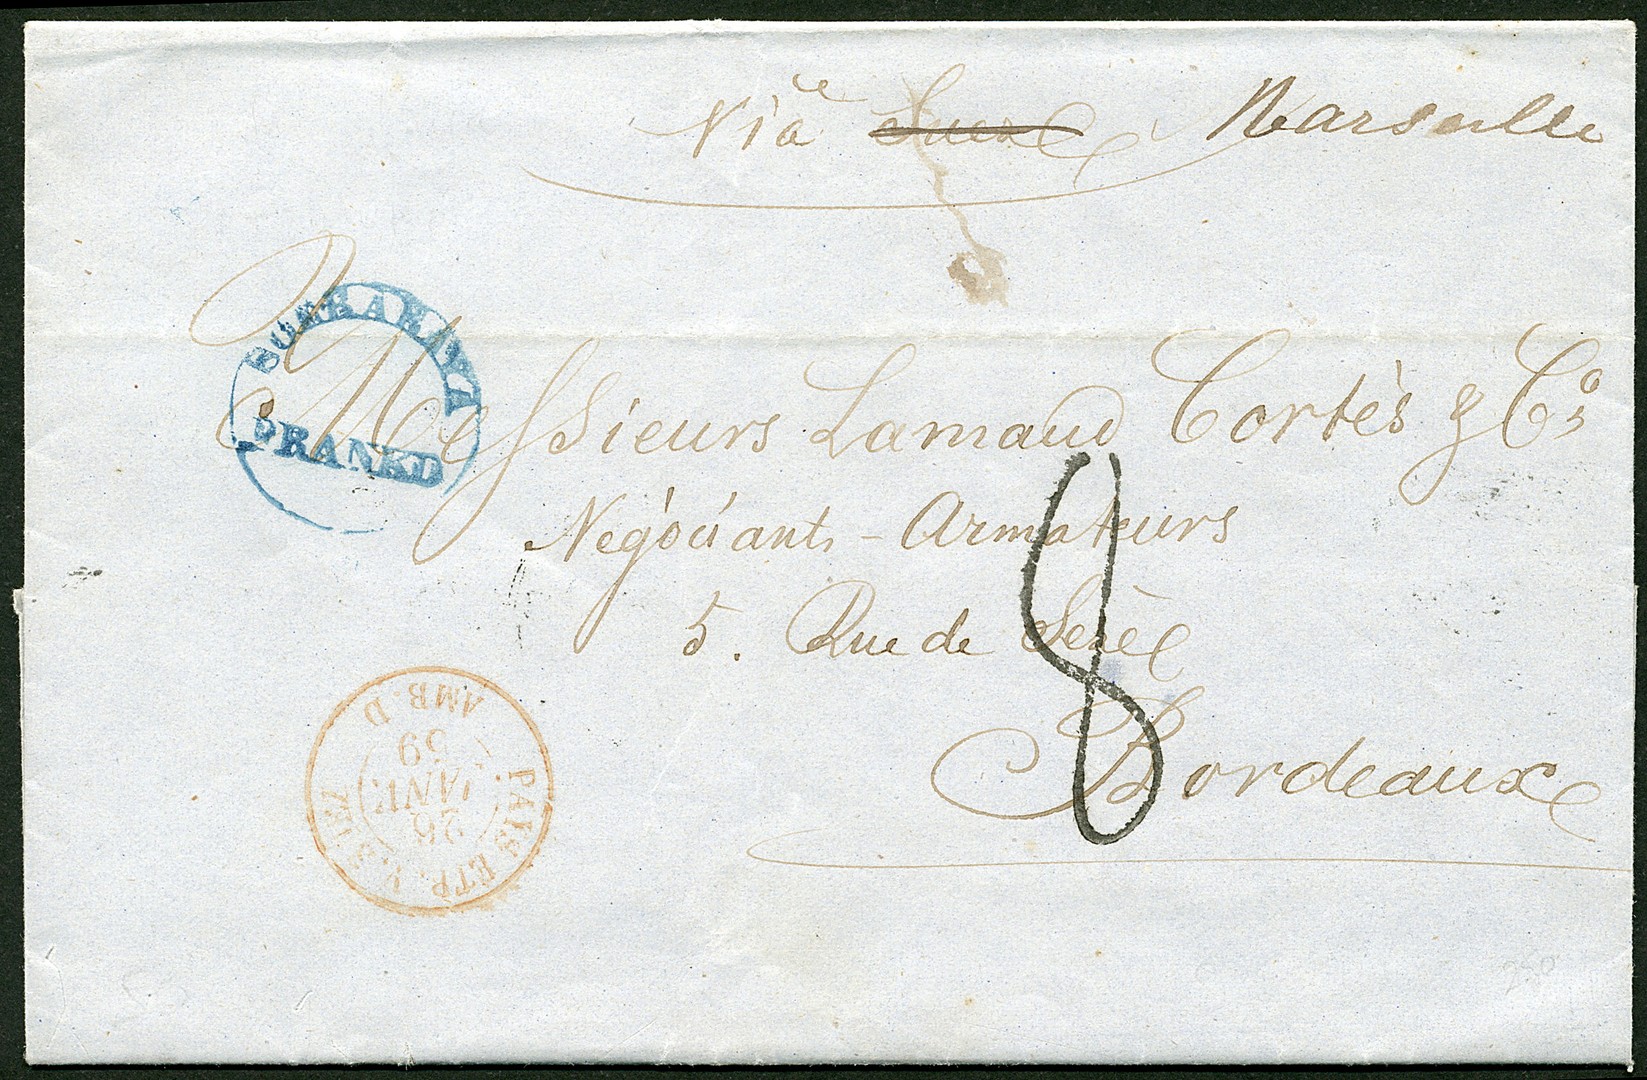 Via Suez Marseille
SOERABAYA
FRANKD
Messieurs Lamaud Cortès & Co
Négociants - Armateurs
5. Rue de Sèze
Bordeaux
8
PAYS ETR. V. SUEZ
26
JANV.
59
AMB. D
250